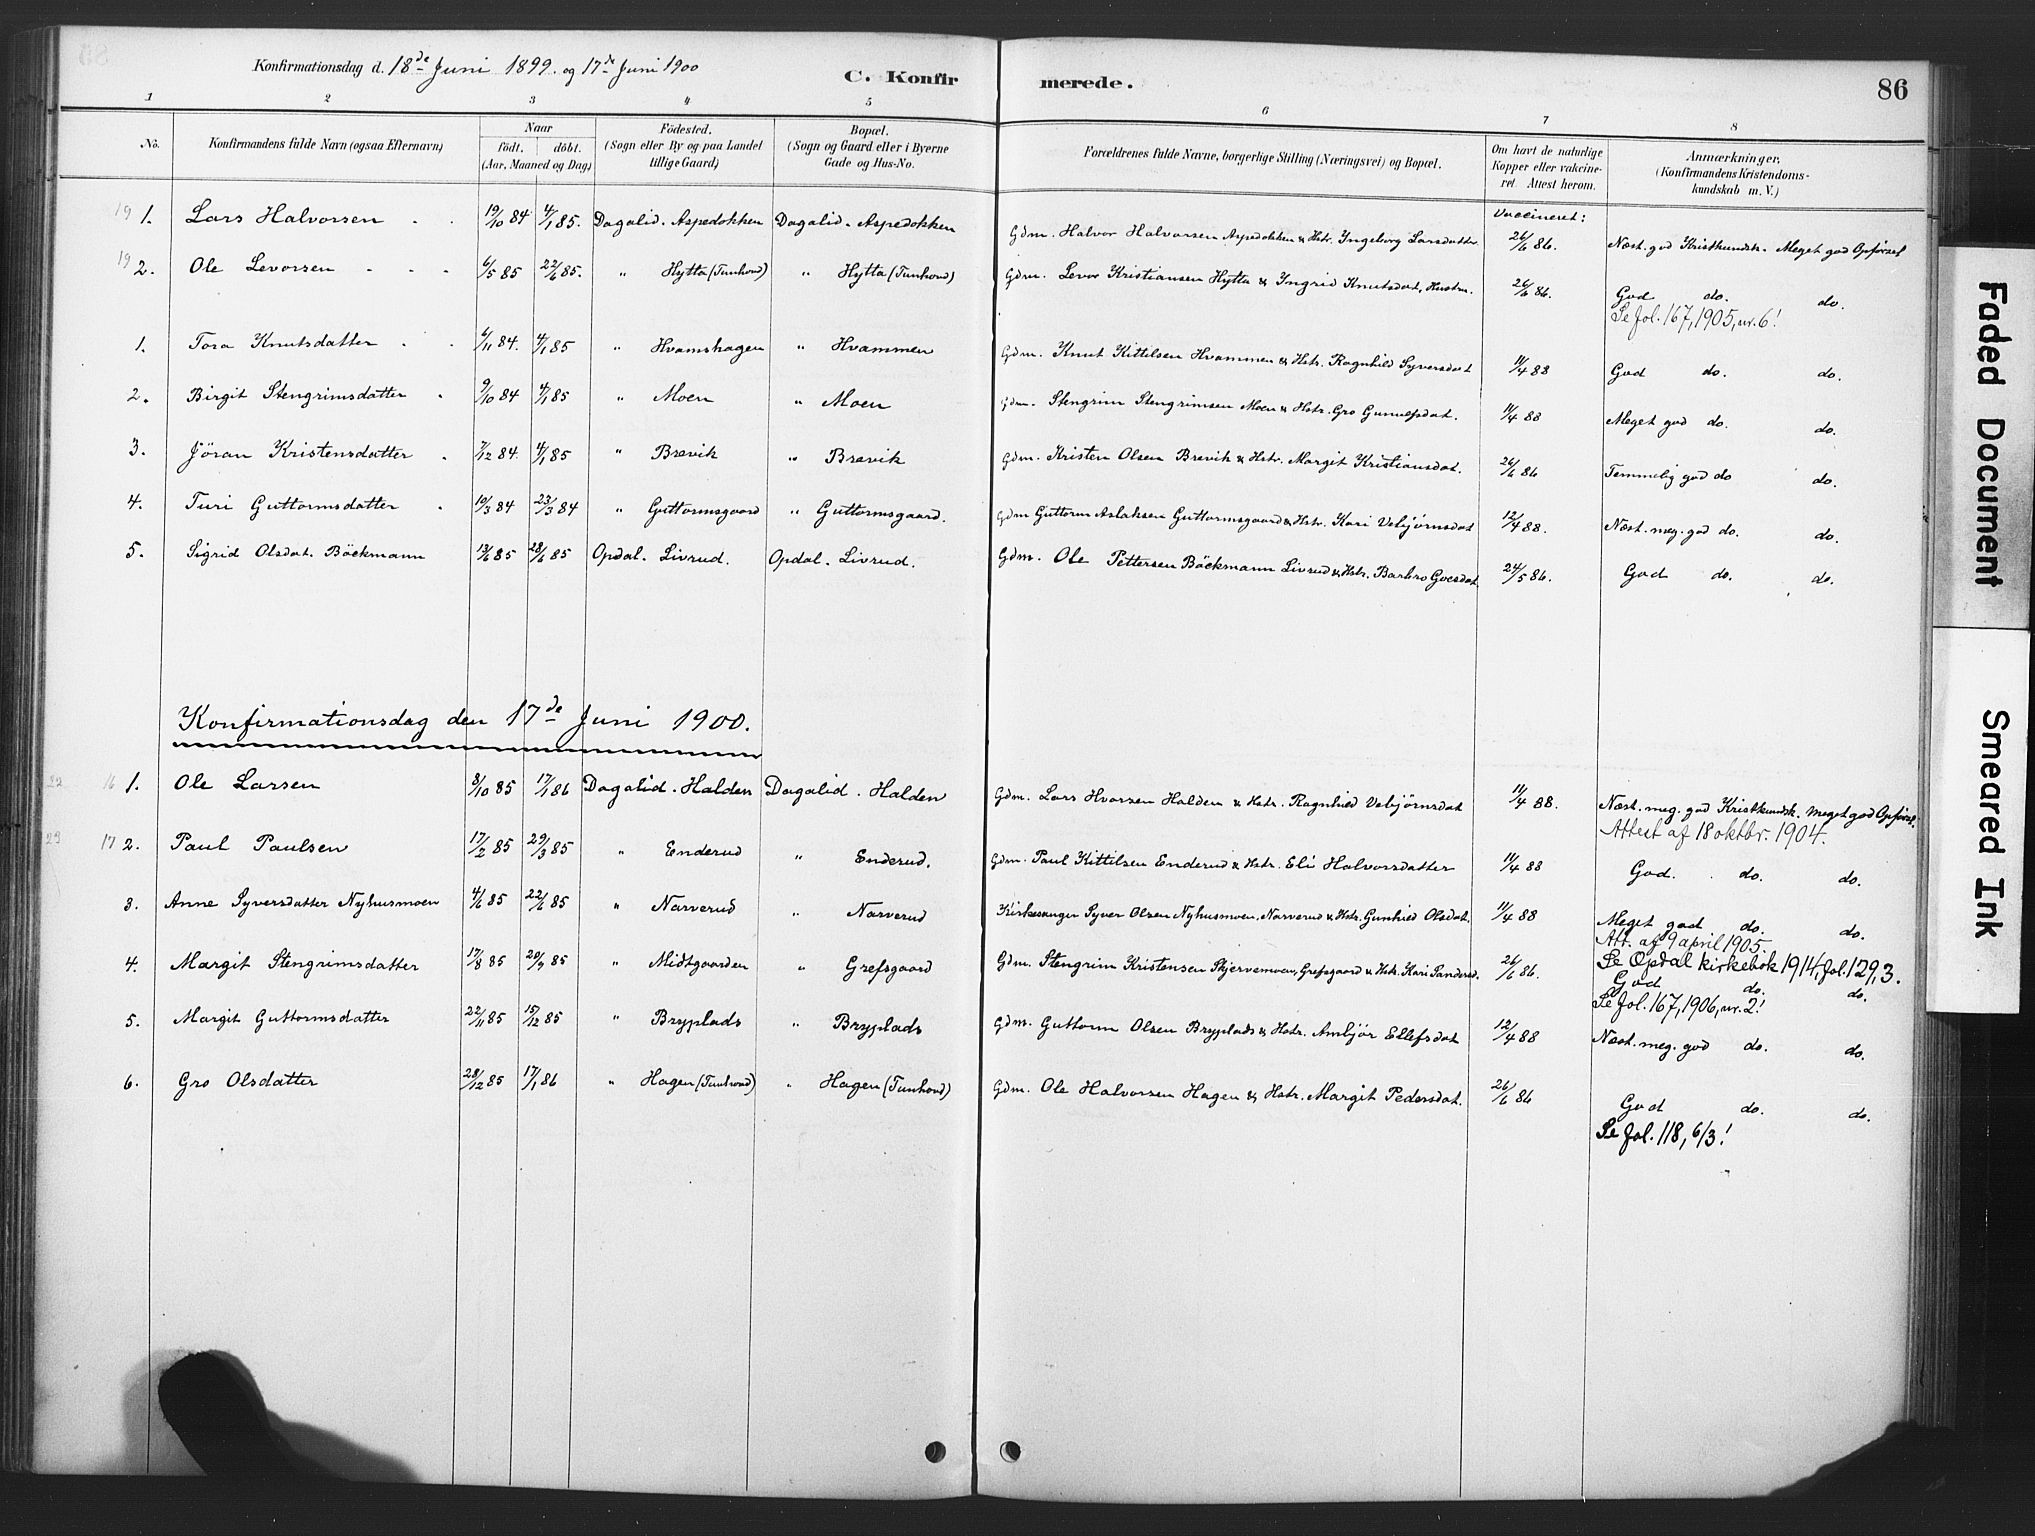 Konfirmationsdag d. 18de Juni 1899 og 17de Juni 1900 C. Konfirmerede. 86
1 2 3 4 5 6 7 8
No. Konfirmandens fulde Navn (ogsaa Efternavn) Naar født. døbt. (Aar, Maaned og Dag) Födested. (Sogn eller By og paa Landet tillige Gaard) Bopæl. (Sogn og Gaard eller i Byerne Gade og Hus-No. Forældrenes fulde Navne, borgerlige Stilling (Næringsvei) og Bopæl. Om havt de naturlige Kopper eller vakcineret. Attest herom. Anmærkninger. (Konfirmandens Kristendomskundskab m. V.)
Vaccineret:
19 1. Lars Halvorsen 19/10 84 4/1 85. Dagalid. Aspedokken Dagalid. Aspedokken Gdm. Halvor Halvorsen Aspedokken & Hstr. Ingeborg Larsdatter 26/6 86. Næst. god Kristkundsk. Meget god Opførsel
19 2. Ole Levorsen 6/5 85 22/6 85. " Hytta (Tunhovd) " Hytta (Tunhovd) Gdm. Levor Kristiansen Hytta & Ingrid Knutsdat, Hustru. 26/6 86. God do. do.
Se fol. 167, 1905, nr. 6!
1. Tora Knutsdatter 6/11 84. 4/1 85 " Hvamshagen " Hvammen Gdm. Knut Kittilsen Hvammen & Hstr. Ragnhild Syversdat 11/4 88 God do. do.
2. Birgit Stengrimsdatter 9/10 84 4/1 85 " Moen " Moen Gdm. Stengrim Stengrimsen Moen & Hstr. Gro Gunulfsdat. 11/4 88 Meget god do. do.
3. Jöran Kristensdatter 7/12 84. 4/1 85 " Brevik " Brevik Gdm. Kristen Olsen Brevik & Hstr. Margit Kristiansdat. 26/6 86 Temmelig god do do.
4. Turi Guttormsdatter 19/3 84 23/3 84 " Guttormsgaard " Guttormsgaard. Gdm Guttorm Aslaksen Guttormsgaard & Hstr. Kari Vebjørnsdat 12/4 88. Næst. meg. god do. do.
5. Sigrid Olsdat. Böckmann 13/6 85 28/6 85 Opdal. Livrud. Opdal. Livrud. Gdm. Ole Pettersen Böckmann Livrud & Hstr. Barbro Goesdat 24/5 86. God do. do.
Konfirmationsdag den 17de Juni 1900.
22 16 1. Ole Larsen 8/10 85 17/1 86 Dagalid. Halden Dagalid. Halden Gdm. Lars Hvorsen Halden & Hstr. Ragnhild Vebjørnsdat 11/4 88. Næst. meg. god Kristkundsk. Meget god Opførsel.
Attest af 18 oktbr. 1904.
23 17 2. Paul Paulsen 17/2 85 29/3 85 " Enderud " Enderud. Gdm. Paul Kittilsen Enderud & Hstr. Eli Halvorsdatter 11/4 88 God. do. do.
3. Anne Syversdatter Nyhusmoen 4/6 85 22/6 85 " Narverud " Narverud Kirkesanger Syver Olsen Nyhusmoen, Narverud & Hstr. Gunhild Olsdat. 11/4 88 Meget god do. do.
Att. af 9 april 1905.
Se Opdal kirkebok 1914, fol. 129, 3.
4. Margit Stengrimsdatter 17/8 85 20/9 85 " Midtgaarden " Grefsgaard Gdm. Stengrim Kristensen Skjervemoen, Grefsgaard & Hstr. Kari Sandersd. 26/6 86. God do. do.
Se fol. 167, 1906, nr. 2!
5. Margit Guttormsdatter 22/11 85 15/12 85 " Bryplads " Bryplads Gdm. Guttorm Olsen Bryplads & Hstr. Ambjør Ellefsdat 12/4 88 Næst. meg. god do. do.
6. Gro Olsdatter 28/12 85 17/1 86 " Hagen (Tunhovd) " Hagen (Tunhovd) Gdm. Ole Halvorsen Hagen & Hstr. Margit Pedersdat. 26/6 86 God do. do.
Se fol. 118, 6/3!
Faded Document
Smeared Ink